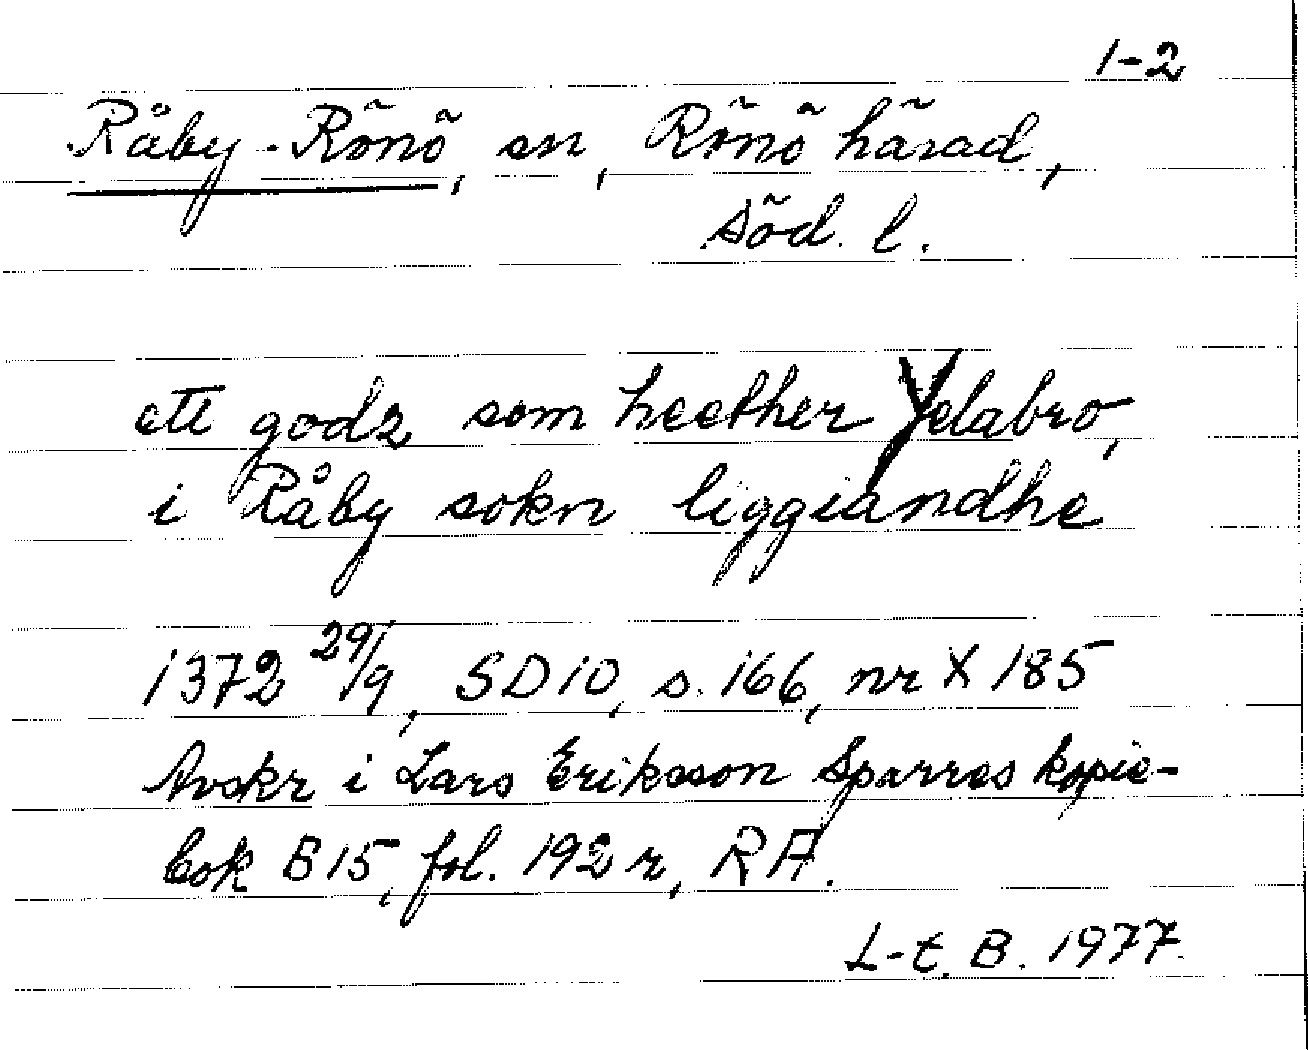 1-2
Råby-Rönö, sn, Rönö härad,
Söd. l.
ett godz som heether Yelabro,
i Råby sokn liggiandhe
1372 29/9, SD 10, s. 166, nr X 185
Avskr i Lars Eriksson Sparres kopie-
bok B 15, fol. 192 r, RA.
L-t. B. 1977.